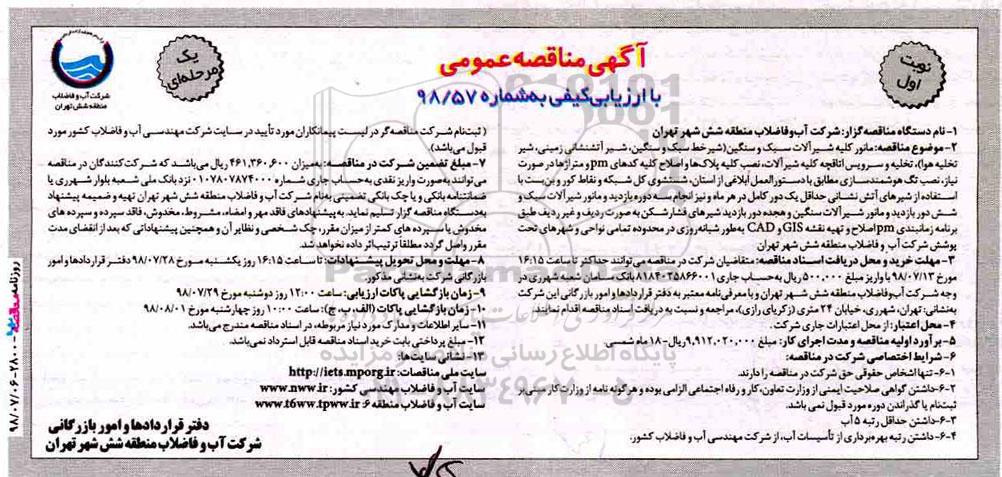 شرکت آب و فاضلاب
منطقه شش تهران
یک
مرحله‌ای
نوبت
اول
آگهی مناقصه عمومی
با ارزیابی کیفی به‌شماره ۹۸/۵۷
۱- نام دستگاه مناقصه گزار: شرکت آب و فاضلاب منطقه شش شهر تهران
۲- موضوع مناقصه: مانور کلیه شیرآلات سبک و سنگین (شیر خط سبک و سنگین، شیر آتشنشانی زمینی، شیر
تخلیه هوا)، تخلیه و سرویس اتاقچه کلیه شیرآلات، نصب کلیه پلاک‌ها و اصلاح کلیه کدهای pm و متراژها در صورت
نیاز، نصب تگ هوشمندسازی مطابق با دستورالعمل ابلاغی از استان، شستشوی کل شبکه و نقاط کور و بن‌بست با
استفاده از شیرهای آتش نشانی حداقل یک دور کامل در هر ماه و نیز انجام سه دوره بازدید و مانور شیرآلات سبک و
شش دور بازدید و مانور شیرآلات سنگین و هجده دور بازدید شیرهای فشارشکن به صورت ردیف و غیر ردیف طبق
برنامه زمانبندی pm اصلاح و تهیه نقشه GIS و CAD به‌طور شبانه‌روزی در محدوده تمامی نواحی و شهرهای تحت
پوشش شرکت آب و فاضلاب منطقه شش شهر تهران
۳- مهلت خرید و محل دریافت اسناد مناقصه: متقاضیان شرکت در مناقصه می‌توانند حداکثر تا ساعت ۱۶:۱۵
مورخ ۹۸/۰۷/۱۳ با واریز مبلغ ۵۰۰,۰۰۰ ریال به‌حساب جاری ۸۱۸۴۰۲۵۸۶۶۰۰۱ بانک سامان شعبه شهرری در
وجه شرکت آب و فاضلاب منطقه شش شهر تهران و با معرفی‌نامه معتبر به دفتر قراردادها و امور بازرگانی این شرکت
به‌نشانی: تهران، شهرری، خیابان ۲۴ متری (زکریای رازی)، مراجعه و نسبت به دریافت اسناد مناقصه اقدام نمایند.
۴- محل اعتبار: از محل اعتبارات جاری شرکت.
۵- برآورد اولیه مناقصه و مدت اجرای کار: مبلغ ۹,۹۱۲,۰۲۰,۰۰۰ ریال - ۱۸ ماه شمسی.
۶- شرایط اختصاصی شرکت در مناقصه:
۶-۱- تنها اشخاص حقوقی حق شرکت در مناقصه را دارند.
۶-۲- داشتن گواهی صلاحیت ایمنی از وزارت تعاون، کار و رفاه اجتماعی الزامی بوده و هرگونه نامه از وزارت کار مبنی بر
ثبت‌نام یا گذراندن دوره مورد قبول نمی باشد.
۶-۳- داشتن حداقل رتبه ۵ آب
۶-۴- داشتن رتبه بهره‌برداری از تأسیسات آب، از شرکت مهندسی آب و فاضلاب کشور.
( ثبت‌نام شرکت مناقصه‌گر در لیست پیمانکاران مورد تأیید در سایت شرکت مهندسی آب و فاضلاب کشور مورد
قبول می‌باشد)
۷- مبلغ تضمین شرکت در مناقصه: به‌میزان ۴۶۱,۳۶۰,۶۰۰ ریال می‌باشد که شرکت‌کنندگان در مناقصه
می‌توانند به‌صورت واریز نقدی به‌حساب جاری شماره ۰۱۰۷۸۰۷۸۷۴۰۰۰ نزد بانک ملی شعبه بلوار شهرری یا
ضمانتنامه بانکی و یا چک بانکی تضمینی به‌نام شرکت آب و فاضلاب منطقه شش شهر تهران تهیه و ضمیمه پیشنهاد
به‌دستگاه مناقصه گزار تسلیم نماید. به پیشنهادهای فاقد مهر و امضاء، مشروط، مخدوش، فاقد سپرده و سپرده های
مخدوش یا سپرده های کمتر از میزان مقرر، چک شخصی و نظایر آن و همچنین پیشنهاداتی که بعد از انقضای مدت
مقرر واصل گردد مطلقا ترتیب‌اثر داده نخواهد شد.
۸- مهلت و محل تحویل پیشنهادات: تا ساعت ۱۶:۱۵ روز یکشنبه مورخ ۹۸/۰۷/۲۸ دفتر قراردادها و امور
بازرگانی شرکت به‌نشانی مذکور.
۹- زمان بازگشایی پاکات ارزیابی: ساعت ۱۲:۰۰ روز دوشنبه مورخ ۹۸/۰۷/۲۹
۱۰- زمان بازگشایی پاکات (الف، ب، ج): ساعت ۱۰:۰۰ روز چهارشنبه مورخ ۹۸/۰۸/۰۱
۱۱- سایر اطلاعات و مدارک مورد نیاز مربوطه، در اسناد مناقصه مندرج می‌باشد.
۱۲- مبلغ پرداختی بابت خرید اسناد مناقصه قابل استرداد نمی‌باشد.
۱۳- نشانی سایت‌ها:
سایت ملی مناقصات: http://iets.mporg.ir
سایت آب و فاضلاب مهندسی کشور: www.nww.ir
سایت آب و فاضلاب منطقه ۶ www.t6ww.tpww.ir
دفتر قراردادها و امور بازرگانی
شرکت آب و فاضلاب منطقه شش شهر تهران
روزنامه مناقصه ۲۸۰۰-۹۸/۰۷/۰۶
پایگاه اطلاع رسانی مناقصه و مزایده
۰۲۱-۸۸۳۴۹۶۷۰-۵